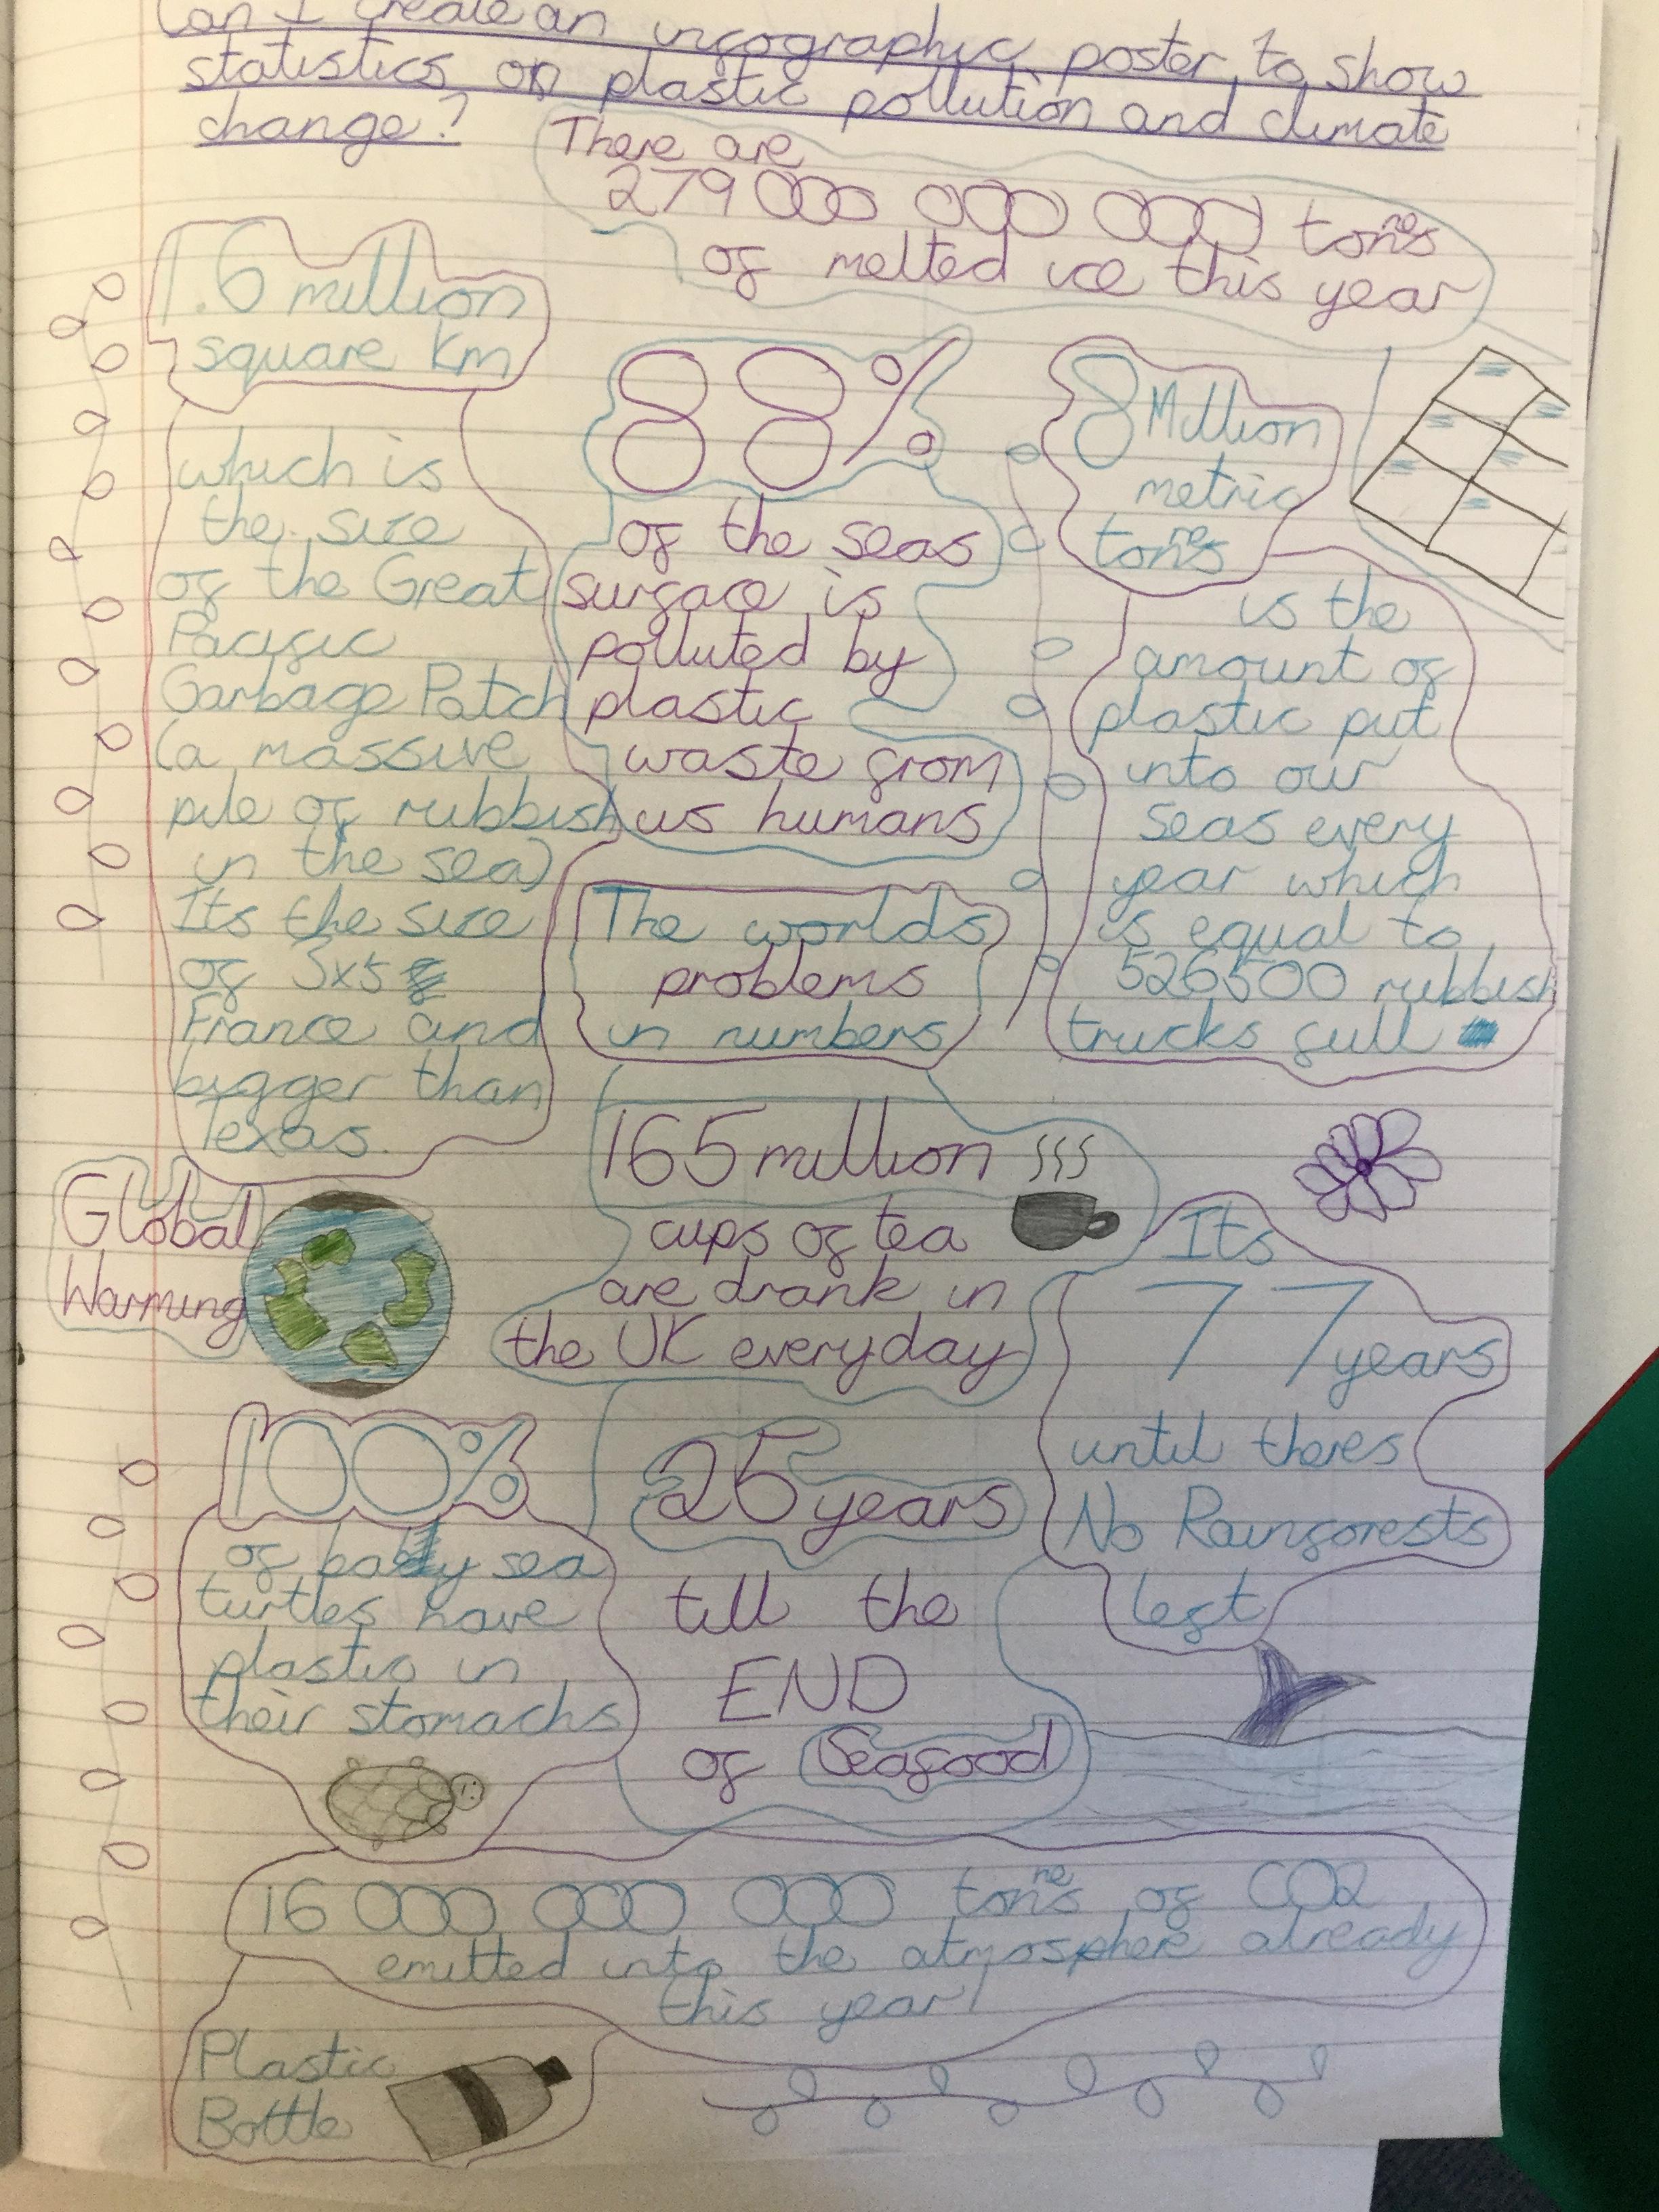 Can I create an infographic poster to show
statistics on plastic pollution and climate
change?
There are
279 000 000 000 tonnes
of melted ice this year
1.6 million
square Km
which is
the size
of the Great
Pacific
Garbage Patch
(a massive
pile of rubbish
in the sea)
Its the size
of 3x5
France and
bigger than
Texas.
88%
of the seas
surface is
polluted by
plastic
waste from
us humans
8 Million
metric
tonnes
is the
amount of
plastic put
into our
seas every
year which
is equal to
526500 rubbish
trucks full
The worlds
problems
in numbers
165 million
cups of tea
are drank in
the UK everyday
Global
Warming
Its
77 years
until theres
No Rainforests
left
100%
of baby sea
turtles have
plastic in
their stomachs
25 years
till the
END
of Seafood
16 000 000 000 tonnes of CO2
emitted into the atmosphere already
this year!
Plastic
Bottle